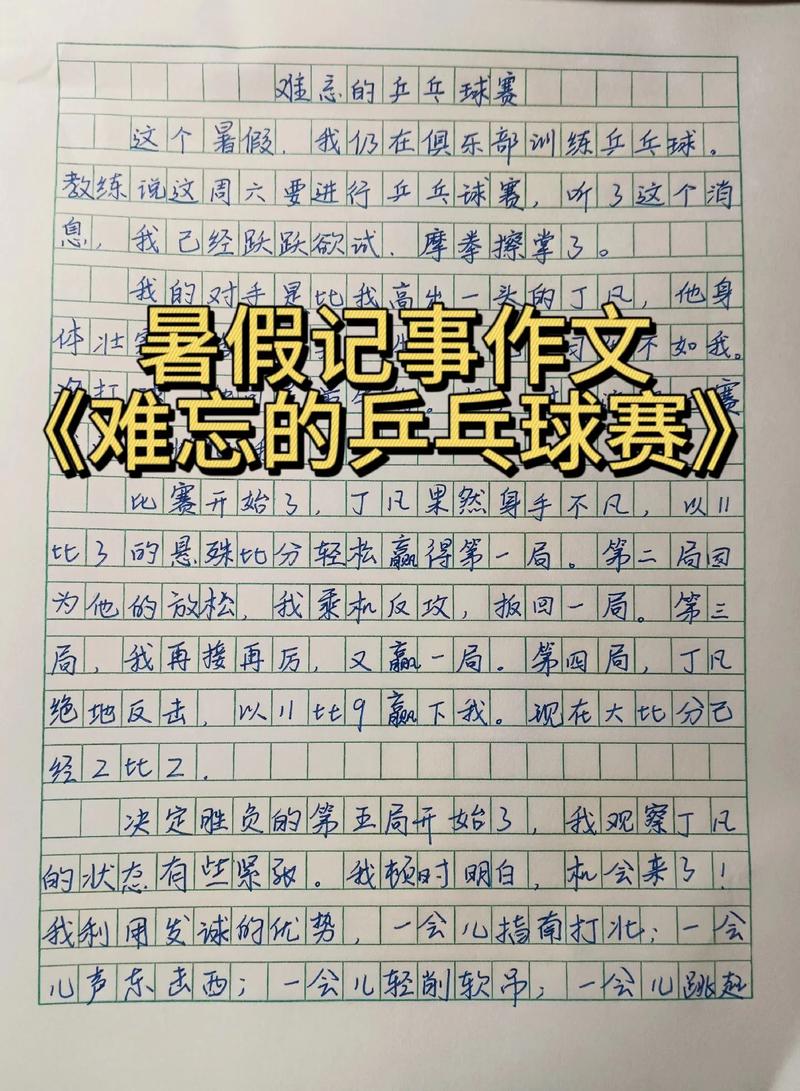 难忘的乒乓球赛
这个暑假，我仍在俱乐部训练乒乓球。
教练说这周六要进行乒乓球赛，听了这个消
息，我已经跃跃欲试、摩拳擦掌了。
我的对手是比我高出一头的丁凡，他身
体壮
不如我。
暑假记事作文
赛
《难忘的乒乓球赛》
比赛开始了，丁凡果然身手不凡，以11
比3的悬殊比分轻松赢得第一局。第二局因
为他的放松，我乘机反攻，扳回一局。第三
局，我再接再厉，又赢一局。第四局，丁凡
绝地反击，以11比9赢下我。现在大比分已
经2比2．
决定胜负的第五局开始了，我观察丁凡
的状态有些紧张。我顿时明白，机会来了！
我利用发球的优势，一会儿指南打北；一会
儿声东击西；一会儿轻削软吊；一会儿跳起